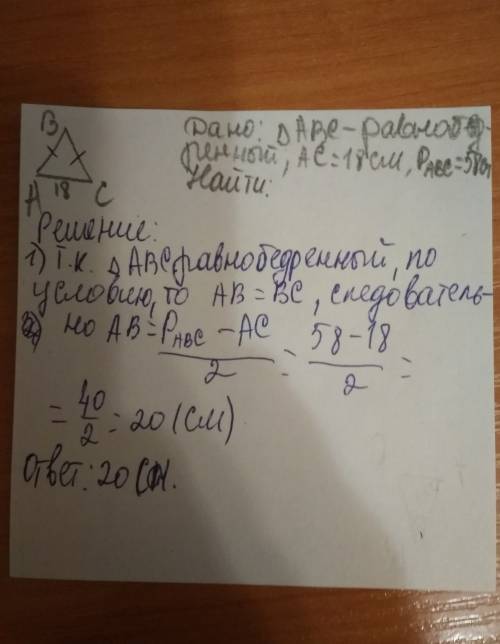 B
Дано: △ABC - равнобед-
ренный, AC = 18 см, P_ABC = 58см
Найти:
A 18 C
Решение:
1) Т.к. △ABC равнобедренный, по
условию, то AB = BC, следователь-
но AB = (P_ABC - AC)/2 = (58 - 18)/2 =
= 40/2 = 20 (см)
Ответ: 20 см.